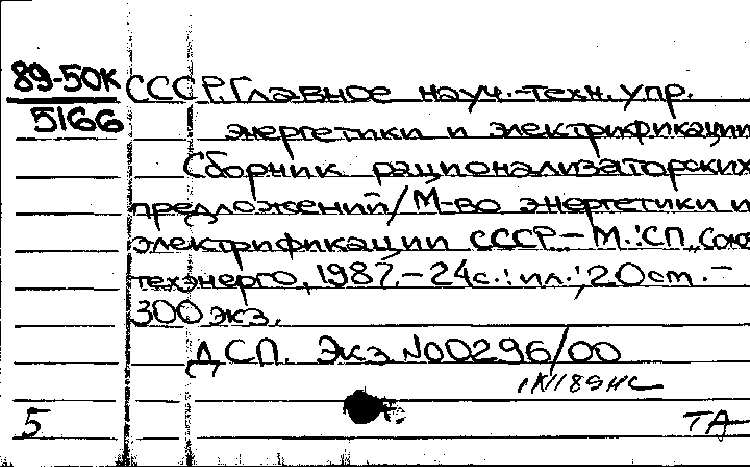 89-50К СССР. Главное науч.-техн. упр.
5166 энергетики и электрификации
Сборник рационализаторских
предложений/М-во энергетики и
электрификации СССР.– М.: СП Союз
техэнерго, 1987.– 24с.: ил.; 20 см. –
300 экз.
ДСП. Экз. N00296/00
5 ТА